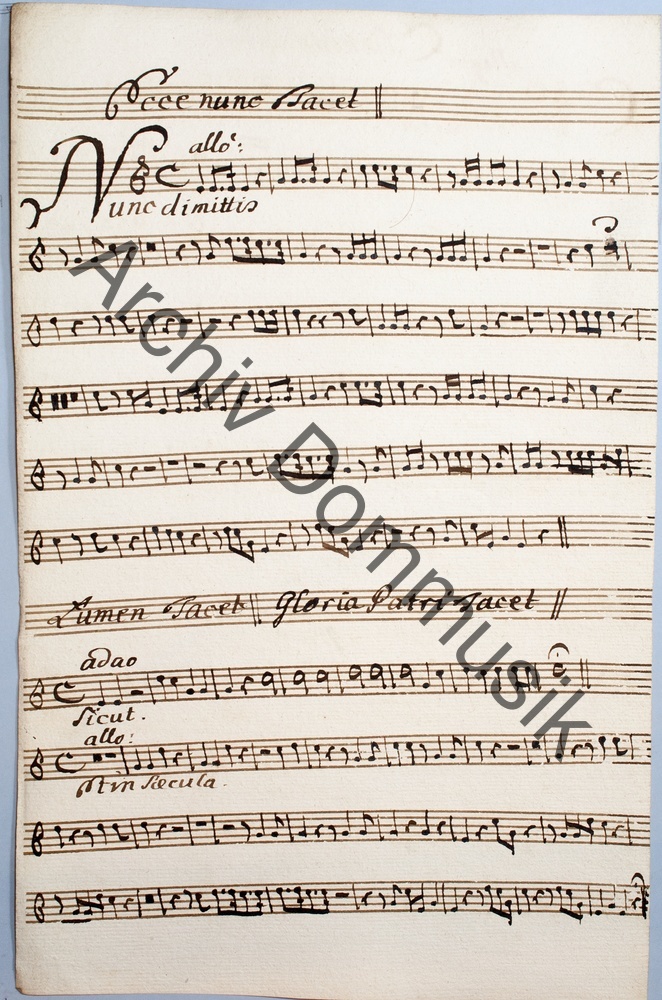 Ecce nunc Tacet
allo:
Nunc dimittis
Lumen Tacet Gloria Patri Tacet
adao
Sicut.
allo:
Et in Sæcula.
Archiv Dommusik